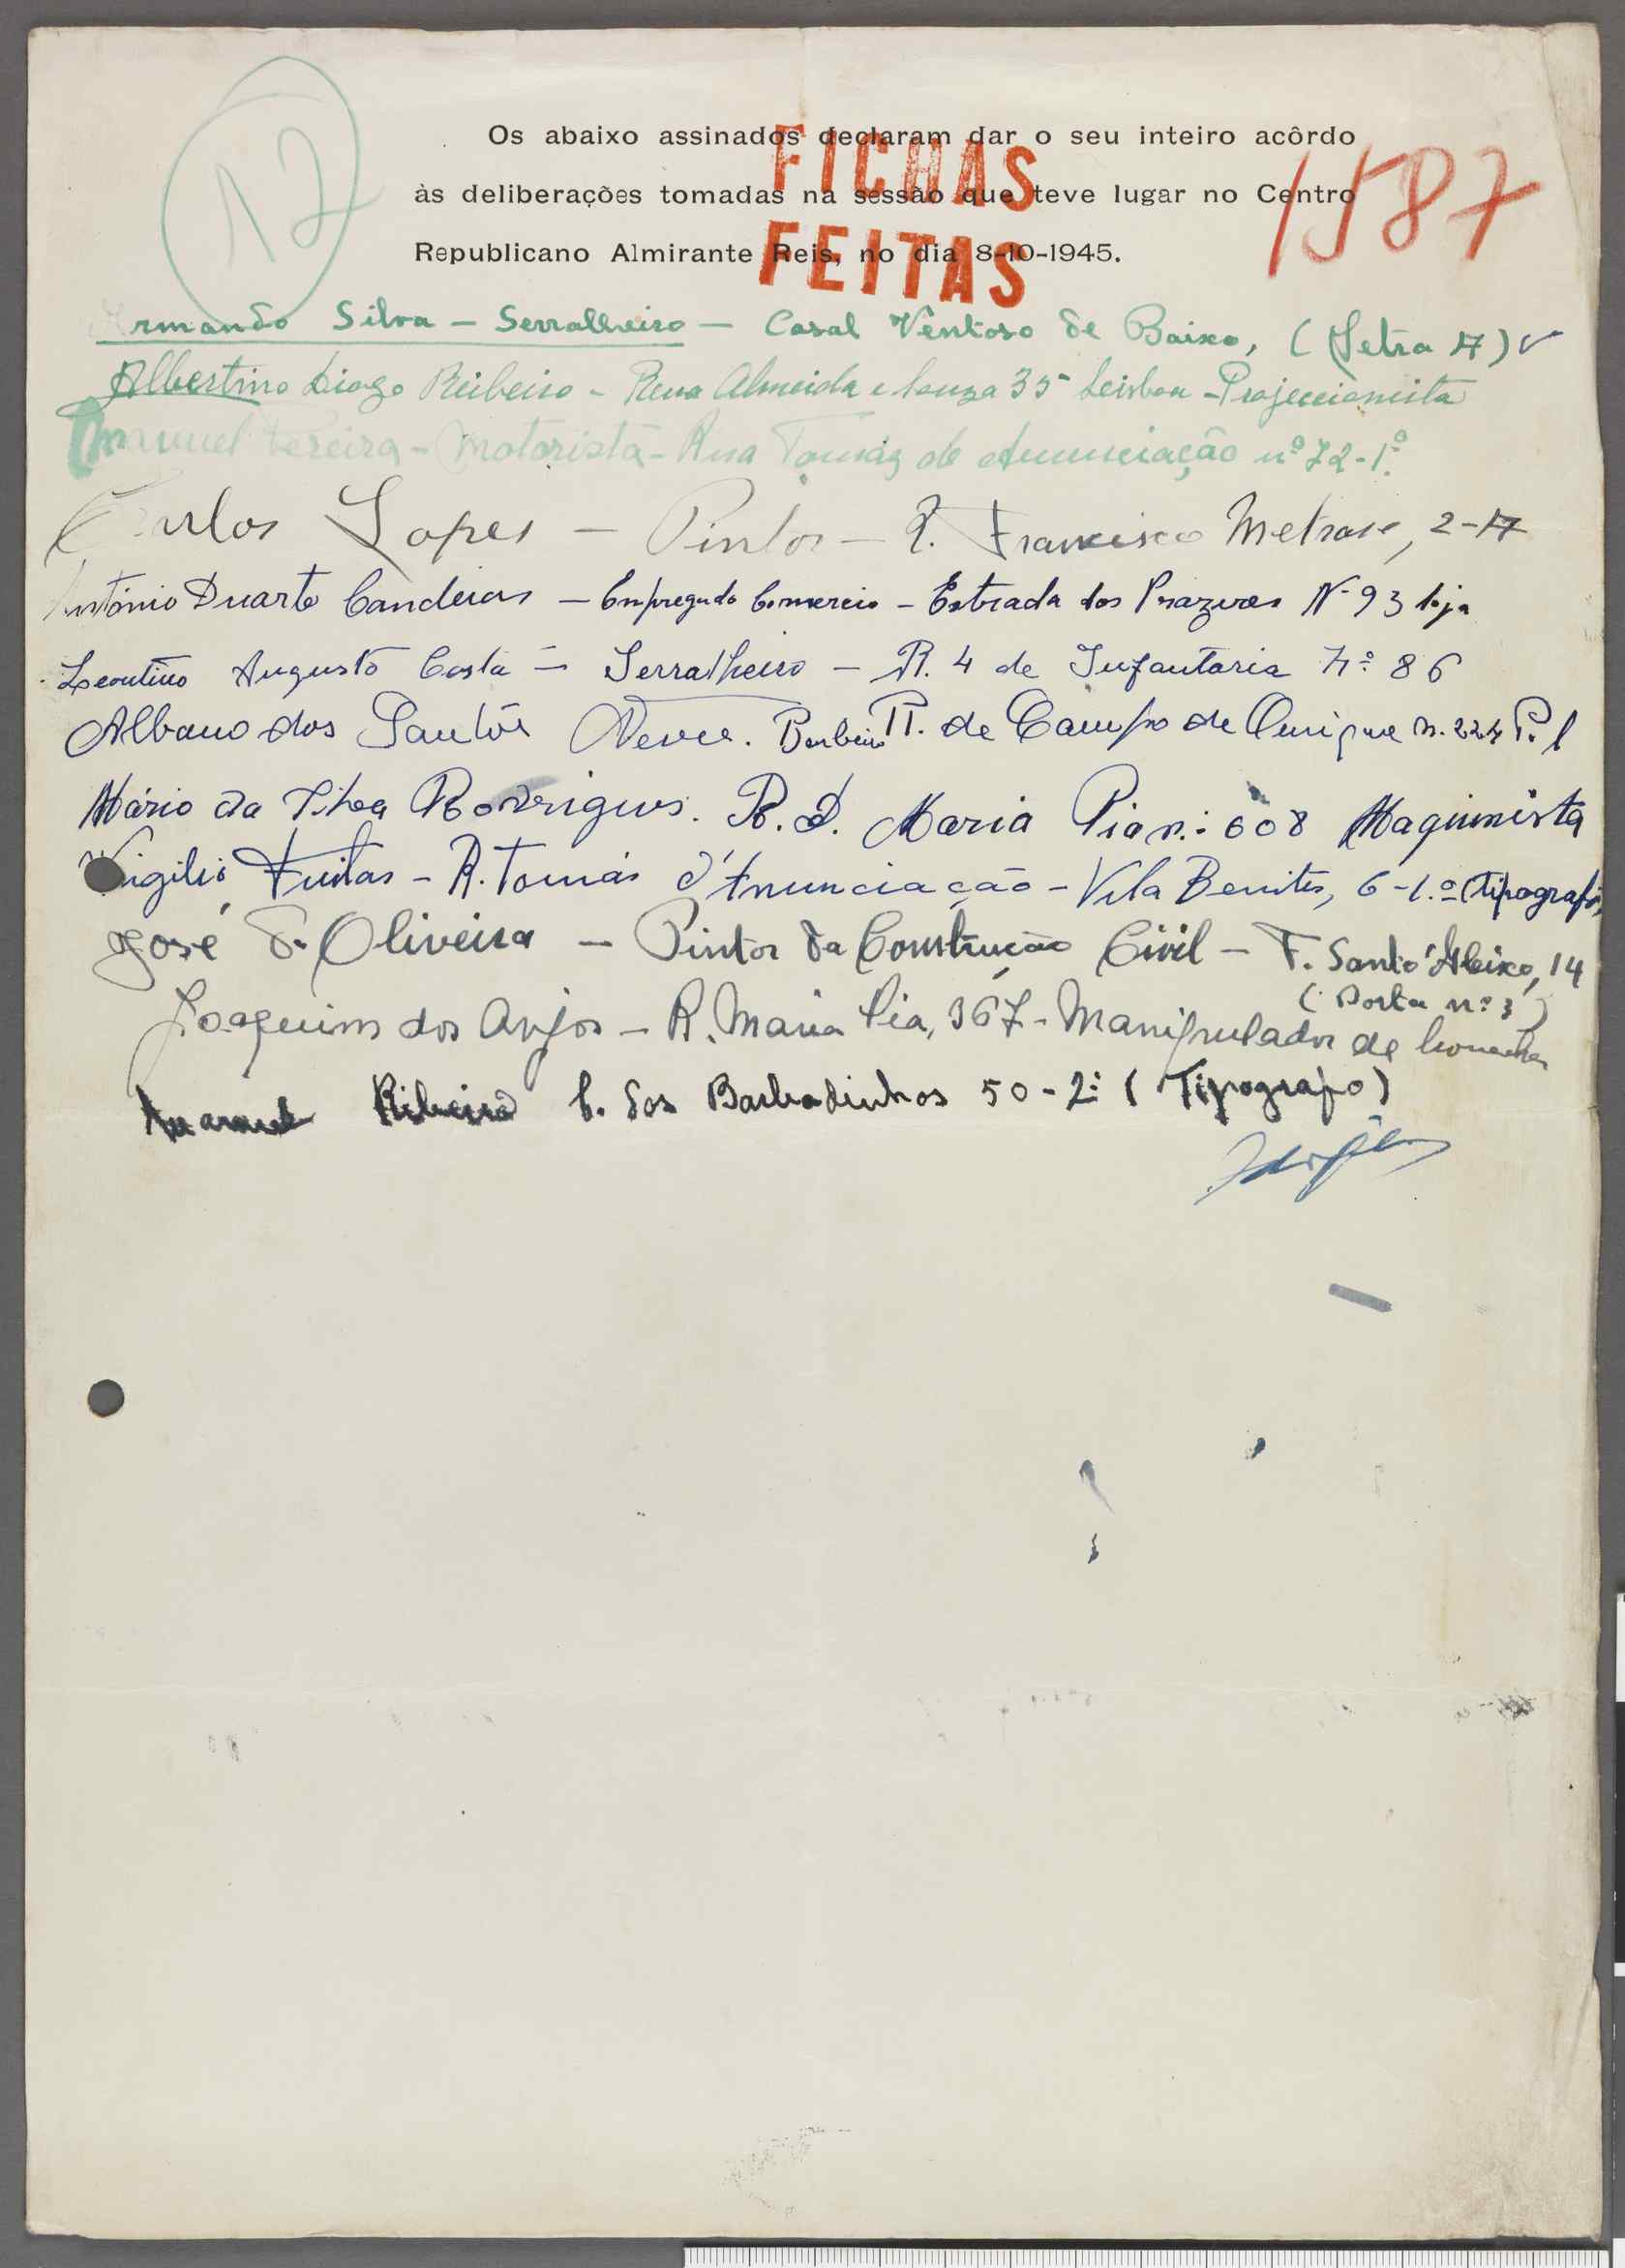 12
Os abaixo assinados declaram dar o seu inteiro acôrdo
às deliberações tomadas na sessão que teve lugar no Centro
Republicano Almirante Reis, no dia 8-10-1945.
FICHAS
FEITAS
1587
Armando Silva - Serralheiro - Casal Ventoso de Baixo, (Letra A)
Albertino Diogo Ribeiro - Rua Almeida e Souza 35 Lisboa - Projeccionista
Manuel Pereira - Motorista - Rua Tomás de Anunciação nº 72-1º.
Carlos Lopes - Pintor - R. Francisco Metrass, 2-A
António Duarte Candeias - Empregado Comercio - Estrada dos Prazeres Nº 93 loja
Leontino Augusto Costa - Serralheiro - R. 4 de Infantaria nº 86
Albano dos Santos Neves. Barbeiro R. de Campo de Ourique n. 224 P. 1
Mário da Silva Rodrigues. R. D. Maria Pia n.: 608 Maquinista
Virgilio Freitas - R. Tomás d'Anunciação - Vila Benites, 6-1.º (Tipografo)
José d'Oliveira - Pintor da Construção Civil - T. Santo Aleixo, 14
(Porta nº 3)
Joaquim dos Anjos - R. Maria Pia, 367 - Manipulador de
Manuel Ribeiro C. dos Barbadinhos 50-2º (Tipografo)